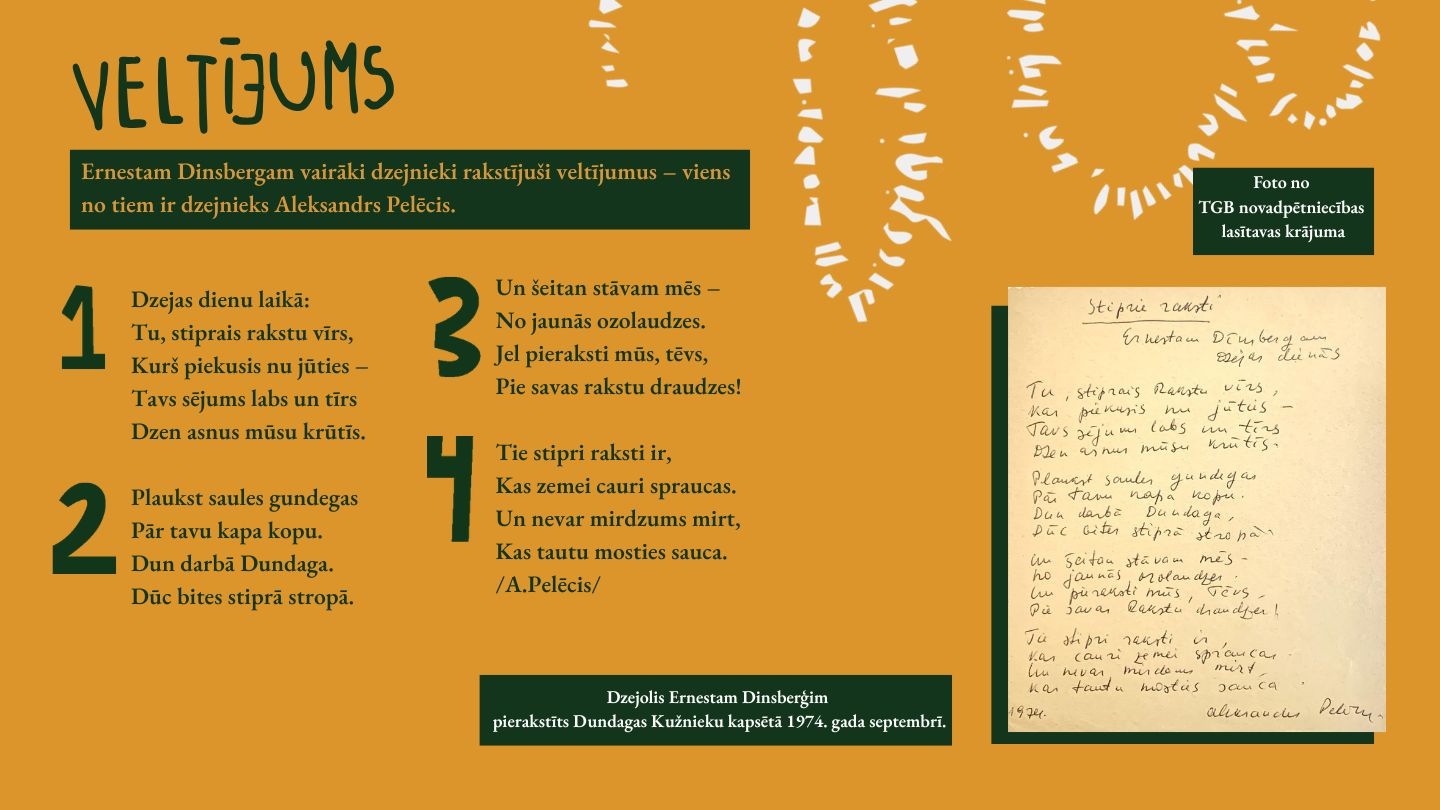 VELTĪJUMS
Ernestam Dinsbergam vairāki dzejnieki rakstījuši veltījumus – viens
no tiem ir dzejnieks Aleksandrs Pelēcis.
1
Dzejas dienu laikā:
Tu, stiprais rakstu vīrs,
Kurš piekusis nu jūties –
Tavs sējums labs un tīrs
Dzen asnus mūsu krūtīs.
2
Plaukst saules gundegas
Pār tavu kapa kopu.
Dun darbā Dundaga.
Dūc bites stiprā stropā.
3
Un šeitan stāvam mēs –
No jaunās ozolaudzes.
Jel pieraksti mūs, tēvs,
Pie savas rakstu draudzes!
4
Tie stipri raksti ir,
Kas zemei cauri spraucas.
Un nevar mirdzums mirt,
Kas tautu mosties sauca.
/A.Pelēcis/
Dzejolis Ernestam Dinsberģim
pierakstīts Dundagas Kužnieku kapsētā 1974. gada septembrī.
Foto no
TGB novadpētniecības
lasītavas krājuma
Stiprie raksti
Ernestam Dīnsbergam
Dzejas dienās
Tu, stiprais Rakstu vīrs,
Kas piekusis nu jūties –
Tavs sējums labs un tīrs
Dzen asnus mūsu krūtīs.
Plaukst saules gundegas
Pār tavu kapa kopu.
Dun darbā Dundaga,
Dūc bites stiprā stropā
Un šeitan stāvam mēs –
No jaunās ozolaudzes.
pieraksti mūs, Tēvs,
Pie savas Rakstu draudzes!
Tie stipri raksti ir,
Kas cauri zemei spraucas.
Un nevar mirdzums mirt,
Kas tautu mosties sauca.
1974.
Aleksandrs Pelēcis